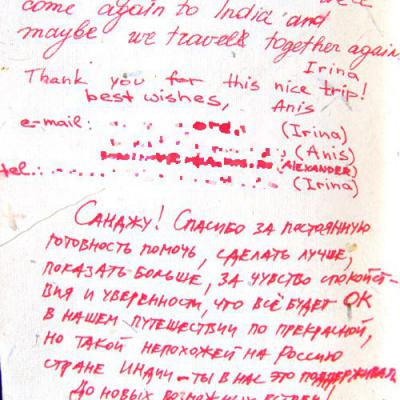 come again to India and
maybe we travels together again.
Irina
Thank you for this nice trip!
best wishes, Anis
e-mail: (Irina)
(Anis)
(ALEXANDER)
tel.: (Irina)
Санджу! Спасибо за постоянную
готовность помочь, сделать лучше,
показать больше, за чувство спокойст-
вия и уверенности, что всё будет ОК
в нашем путешествии по прекрасной,
но такой непохожей на Россию
стране Индии – ты в нас это поддерживал
До новых возможных встреч